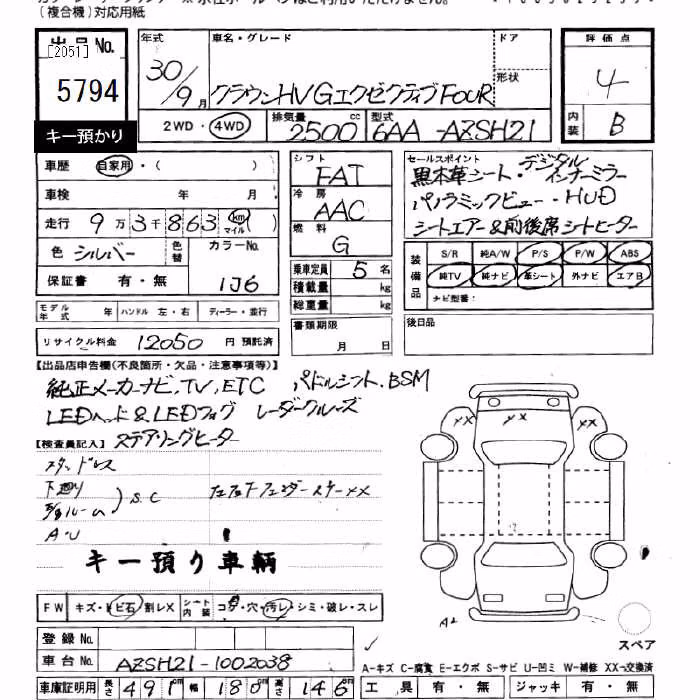 (複合機)対応用紙
出品No. 年式 車名・グレード ドア 評価点
[2051]
5794 30/9月 クラウンHV GエクゼクティブFOUR 形状 4
キー預かり 2WD・4WD 排気量 2500 cc 型式 6AA-AZSH21 内装 B
車歴 自家用・( ) シフト FAT セールスポイント
黒本革シート・デジタルインナーミラー
車検 年 月 冷房 AAC パノラミックビュー・HUD
走行 9万3千863 km マイル ( ) 燃料 G シートエアー&前後席シートヒーター
色 シルバー 色替 カラーNo. 1J6 乗車定員 5名
保証書 有・無 積載量 kg
総重量 kg
装備品 S/R 純A/W P/S P/W ABS
純TV 純ナビ 革シート 外ナビ エアB
ナビ型番:
モデル年式 年 ハンドル 左・右 ディーラー・並行 書類期限 月 日 後日品
リサイクル料金 12050 円 預託済
【出品店申告欄(不良箇所・欠品・注意事項等)】
純正メーカーナビ,TV,ETC パドルシフト,BSM
LEDヘッド&LEDフォグ レーダークルーズ
【検査員記入】ステアリングヒーター
スタッドレス
下廻り
S.C
A・U
キー預り車輌
XX XX
A2
FW キズ・トビ石・割レX シート内装 コゲ・穴・汚レ・シミ・破レ・スレ
登録No.
車台No. AZSH21-1002038
スペア
A-キズ C-腐食 E-エクボ S-サビ U-凹ミ W-補修 XX-交換済
車庫証明用 長さ 491cm 幅 180cm 高さ 146cm 工具 有・無 ジャッキ 有・無